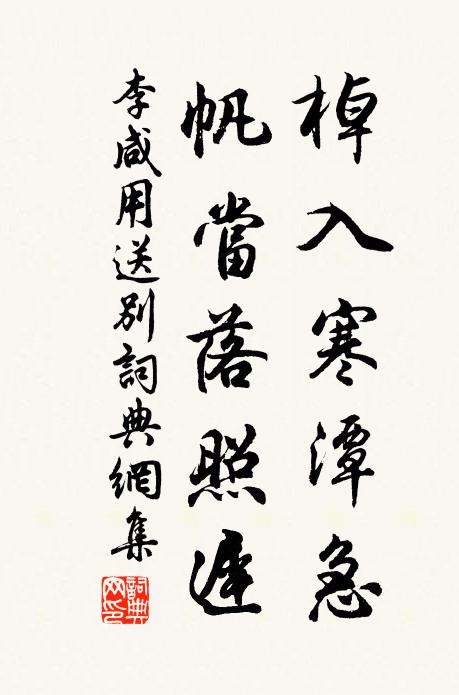 棹入寒潭急
帆當落照遲
李咸用送別詞典網集
詞典網印